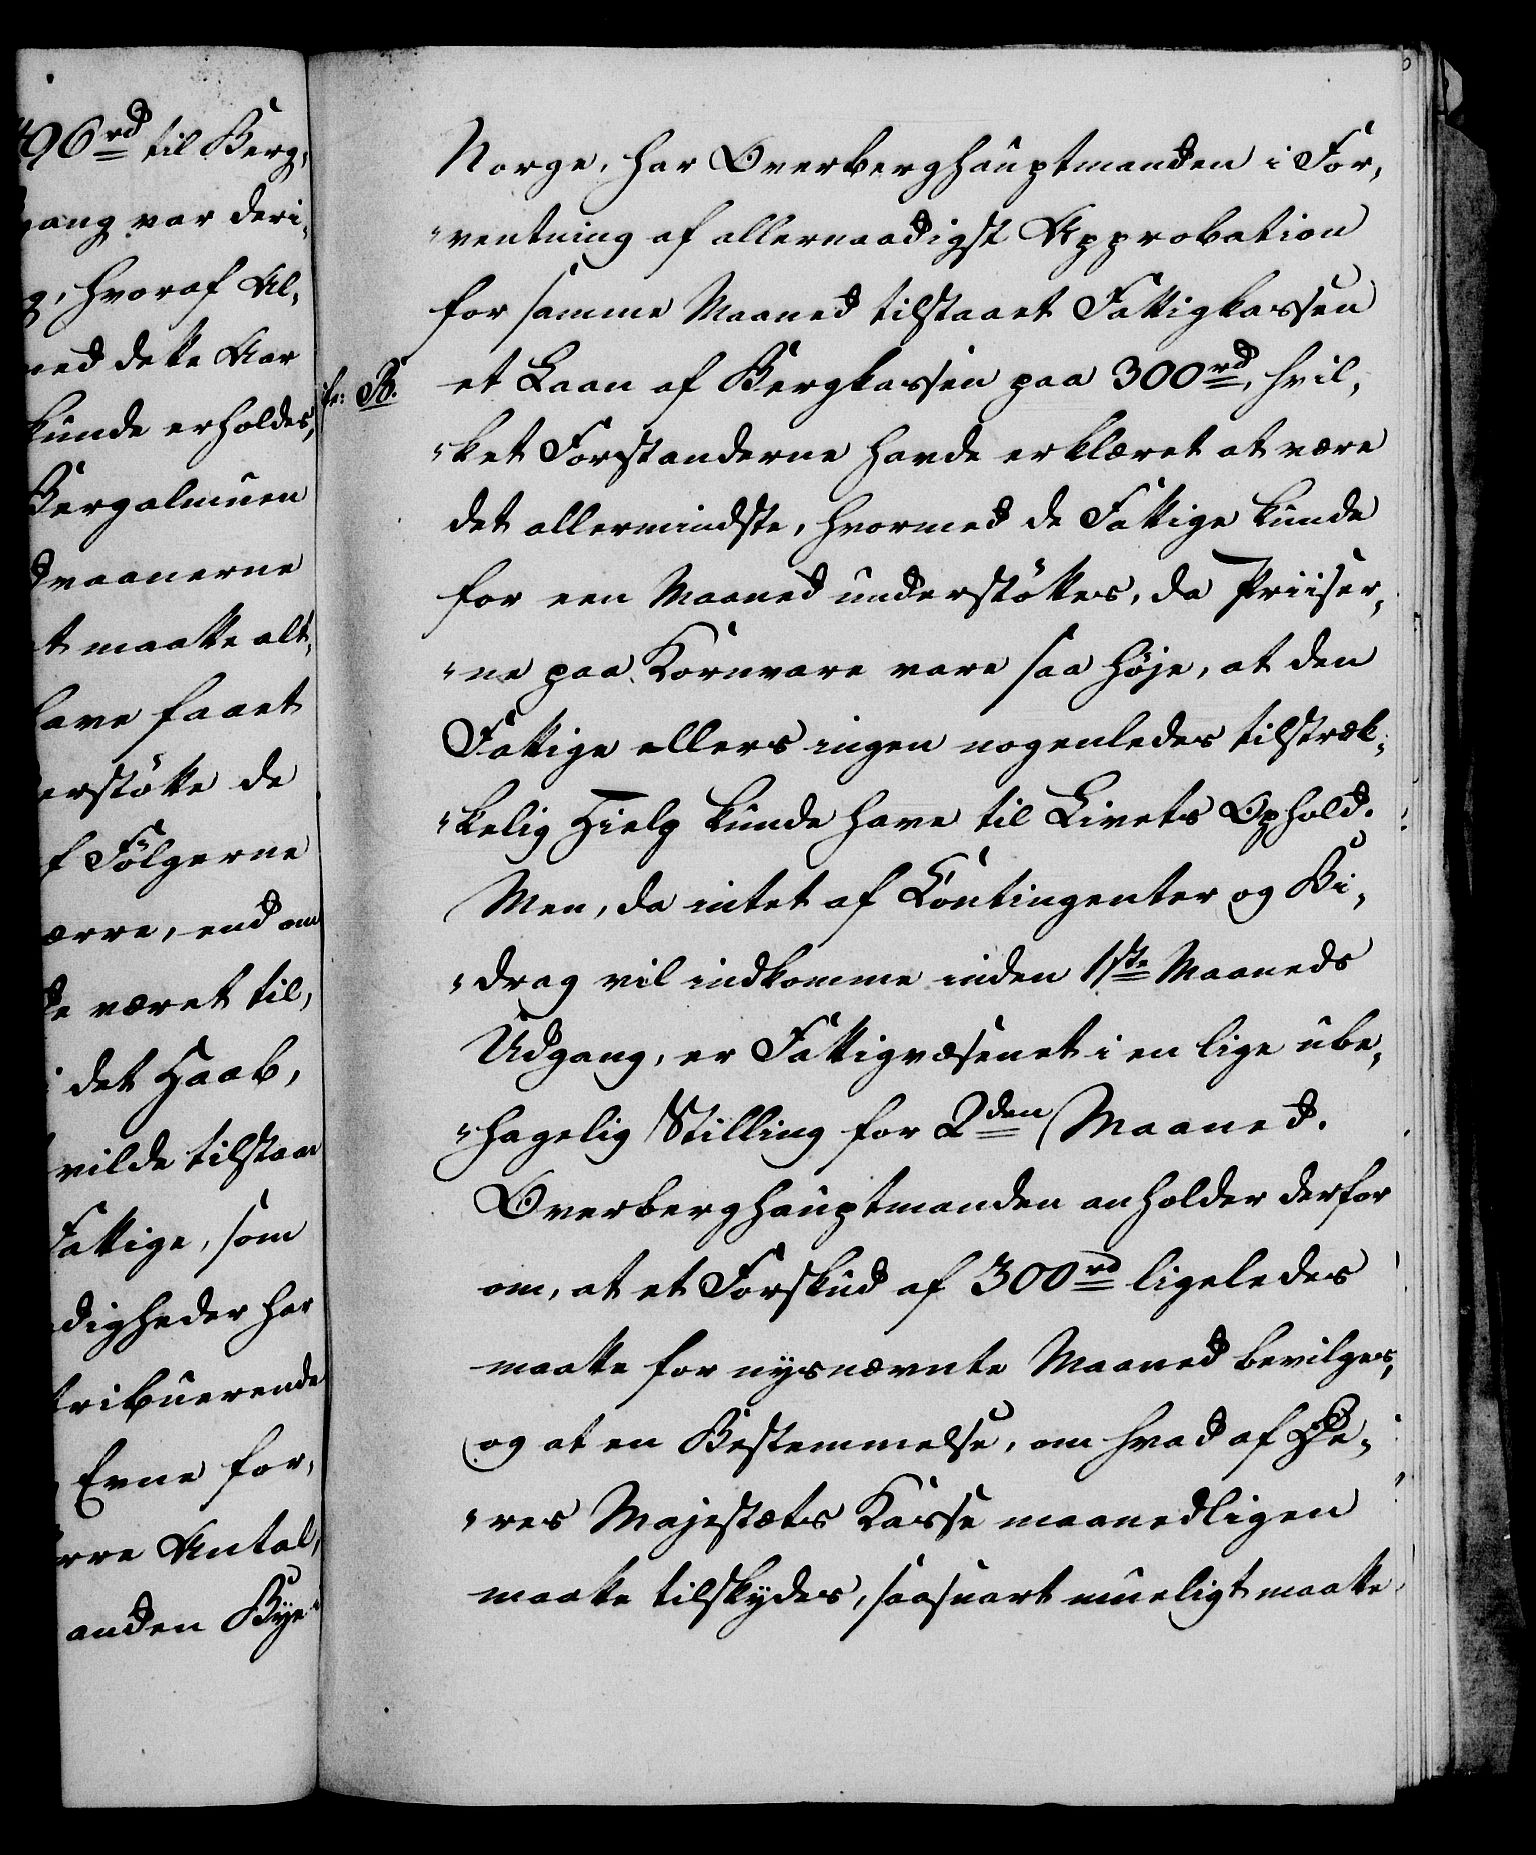 96rd til Berg,
gang var deri,
g, hvoraf Al,
ned dette Aar
kunde erholdes,
Bergalmuen
dvaanerne
t maatte alt,
have faaet
erstötte de
f Fölgerne
ærre, end om
de været til,
i det Haab,
vilde tilstaae
Fattige, som
digheder har
tribuerende
Evne for,
rre Antal,
anden Bye
Norge, har Overberghauptmanden i For,
"ventning af allernaadigst Approbation
for samme Maaned tilstaaet Fattigkassen
B. et Laan af Bergkassen paa 300rd, hvil,
"ket Forstanderne havde erklæret at være
det allermindste, hvormed de Fattige kunde
for een Maaned understöttes, da Priiser,
"ne paa Kornvare vare saa høje, at den
Fattige ellers ingen nogenledes tilstræk,
"kelig Hielp kunde have til Livets Ophold.
Men, da intet af Contingenter og Bi,
"drag vil indkomme inden 1ste Maaneds
Udgang, er Fattigvæsenet i en lige ube,
"hagelig Stilling for 2den Maaned.
Overberghauptmanden anholder derfor
om, at et Forskud af 300rd ligeledes
maatte for nysnævnte Maaned bevilges,
og at en Bestemmelse, om hvad af De,
"res Majestæts Kasse maanedligen
maatte tilskydes, saasnart mueligt maatte